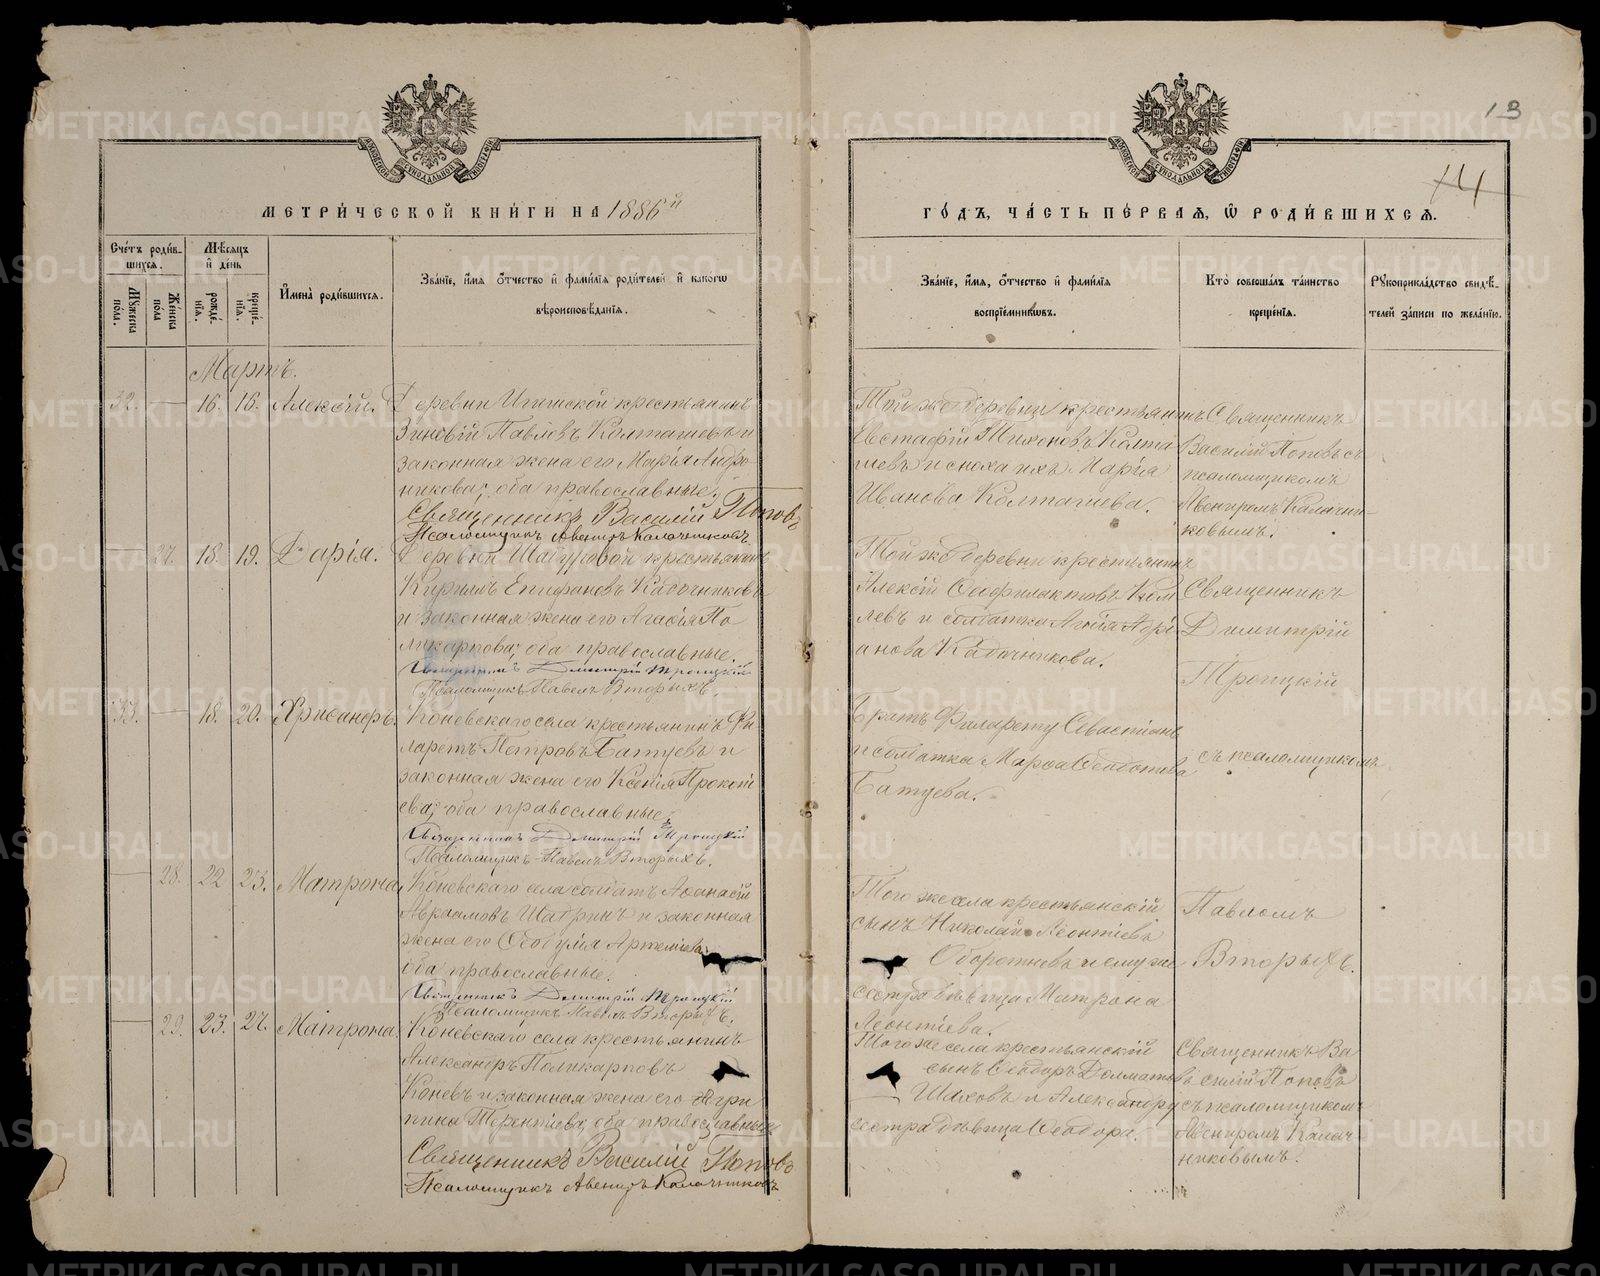 13
14
МЕТРИ́ЧЕСКОЙ КНИ́ГИ НА 1886й
ГО́ДЪ, ЧА́СТЬ ПЕ́РВАЯ, Ѡ РОДИ́ВШИХСЯ.
Сче́тъ роди́в-
шихся.
Му́жеска по́ла.
Же́нска по́ла
Мѣ́сяцъ
и́ де́нь
рожде́-
нїя.
креще́-
нїя.
И́мена̀ роди́вшихся.
Зва́нїе, и́мя о́тчество и́ фами́лїя роди́телей и́ како́гѡ
вѣроисповѣ́данїя.
Зва́нїе, и́мя, о́тчество и́ фами́лїя
воспрїе́мникѡвъ.
Кто̀ соверша́лъ та́инство
креще́нїя.
Рꙋкоприкла́дство свидѣ́-
телей за́писи по жела́нїю.
Мартъ.
32. — 16. 16. Алексій.
Деревни Игишской крестьянинъ
Зиновій Павловъ Колташевъ и
законная жена его Марія Андро
никова; оба православные.
Священникъ Василій Поповъ
Псаломщикъ Авениръ Калачниковъ
Той же деревни крестьянинъ
Евстафій Тихоновъ Колта
шевъ и сноха ихъ Марія
Иванова Колташева.
Священникъ
Василій Поповъ съ
псаломщикомъ
Авениромъ Калачни-
ковымъ.
— 27. 18. 19. Дарія.
Деревни Шабуровой крестьянинъ
Кириллъ Епифановъ Кадочниковъ
и законная жена его Агафія По
ликарпова; оба православные.
Священникъ Димитрій Троицкій
Псаломщикъ Павелъ Вторыхъ.
Той же деревни крестьянинъ
Алексій
левъ и солдатка
анова Кадочникова.
Священникъ
Димитрій
Троицкій
33. — 18. 20. Хрисанфъ.
Коневскаго села крестьянинъ Фи
ларетъ Петровъ Батуевъ и
законная жена его Ксенія Прокопі
ева; оба православные.
Священникъ Димитрій Троицкій
Псаломщикъ Павелъ Вторыхъ.
Братъ Филарету Севастіанъ
и солдатка Марѳа Ѳедотова
Батуева.
съ псаломщикомъ
— 28. 22 23. Матрона
Коневскаго села солдатъ Аѳанасій
Авраамовъ Шатринъ и законная
жена его Артеміева;
оба православные.
Священникъ Димитрій Троицкій
Псаломщикъ Павелъ Вторыхъ.
Того же села крестьянскій
сынъ Николай Леонтіевъ
и ему же
сестра дѣвица Матрона
Леонтіева.
Павломъ
Вторыхъ.
— 29. 23. 27. Матрона
Коневскаго села крестьянинъ
Александръ Поликарповъ
Коневъ и законная жена его Агри
пина Терентіева; оба православные
Священникъ Василій Поповъ
Псаломщикъ Авениръ Калачниковъ
Того же села крестьянскій
сынъ Ѳеодоръ Долматовъ
Шаховъ и Александру
сестра дѣвица Ѳеодора.
Священникъ Ва
силій Поповъ
съ псаломщикомъ
Авениромъ Калач
никовымъ.
METRIKI.GASO-URAL.RU